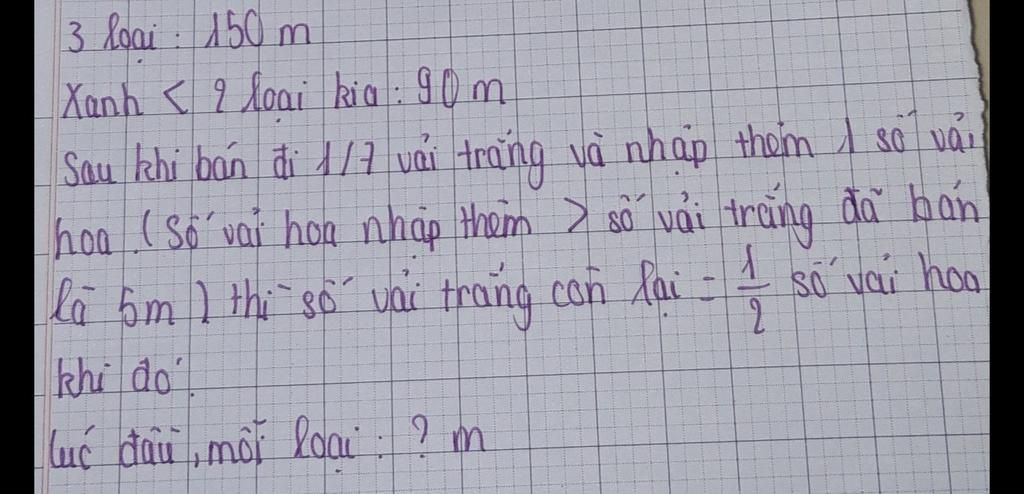 3 loại : 150 m
Xanh < 2 loại kia : 90 m
Sau khi bán đi 1/7 vải trắng và nhập thêm 1 số vải
hoa (số vải hoa nhập thêm > số vải trắng đã bán
là 5m) thì số vải trắng còn lại = 1/2 số vải hoa
khi đó.
lúc đầu, mỗi loại : ? m